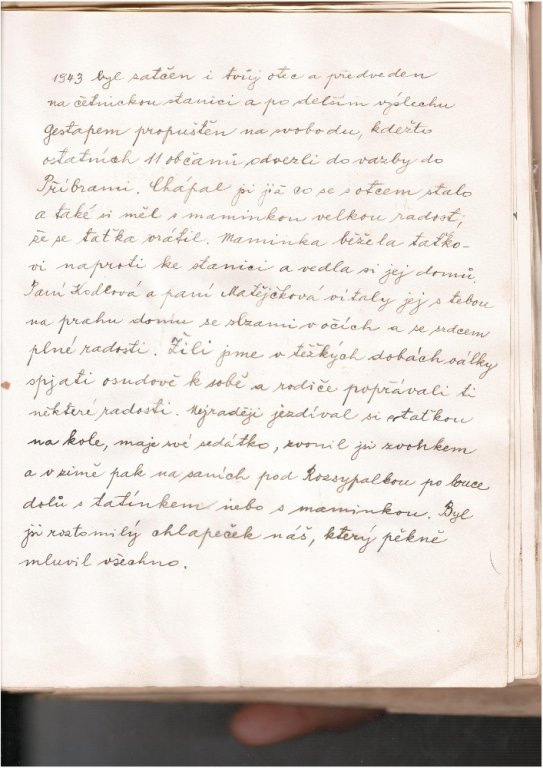 1943 byl zatčen i tvůj otec a předveden
na četnickou stanici a po delším výslechu
gestapem propuštěn na svobodu, kdežto
ostatních 11 občanů odvezli do vazby do
Příbrami. Chápal jsi již co se s otcem stalo
a také si měl s maminkou velkou radost,
že se taťka vrátil. Maminka běžela taťko-
vi naproti ke stanici a vedla si jej domů.
Paní Kodlová a paní Matějčková vítaly jej s tebou
na prahu domu se slzami v očích a se srdcem
plné radosti. Žili jsme v těžkých dobách války
spjati osudově k sobě a rodiče poprávali ti
některé radosti. Nejraději jezdíval si s taťkou
na kole, maje své sedátko, zvonil jsi zvonkem
a v zimě pak na saních pod Rossypalkou po louce
dolů s tatínkem nebo s maminkou. Byl
jsi roztomilý chlapeček náš, který pěkně
mluvil všechno.